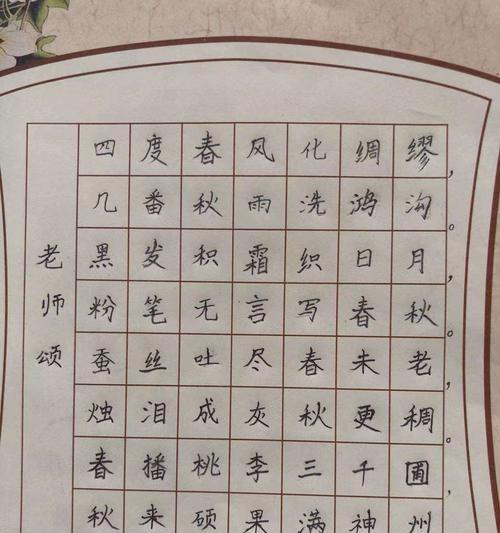 老师颂
四度春风化绸缪,
几番秋雨洗鸿沟。
黑发积霜织日月,
粉笔无言写春秋。
蚕丝吐尽春未老,
烛泪成灰秋更稠。
春播桃李三千圃,
秋来硕果满神州